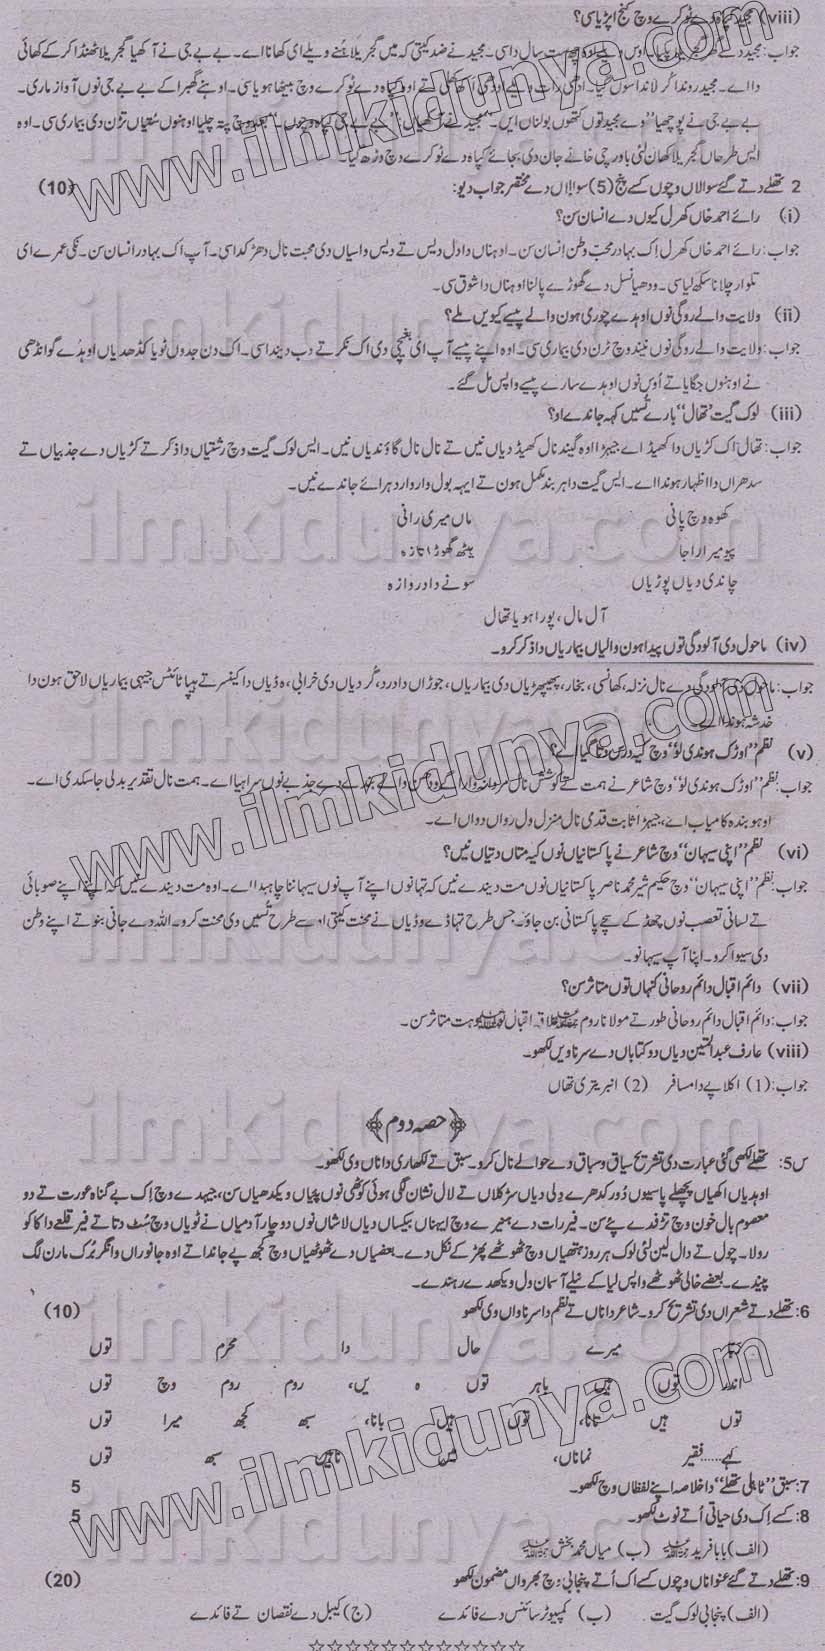 (viii) مجید کپاہ دے ٹوکرے وچ کنج اپڑیا سی؟
دا اے۔ مجید روندا کرلاندا سوں گیا۔ ادھی رات ویلے اوہدی اکھ کھلی تے اوہ کپاہ دے ٹوکرے وچ بیٹھا ہویا سی۔ اوہنے گھبرا کے بے بے جی نوں آواز ماری۔
ایس طرحاں گجریلا کھان لئی باورچی خانے جان دی بجائے کپاہ دے ٹوکرے وچ وڑھ گیا۔
2 تھلے دتے گئے سوالاں وچوں کسے پنج (5) سوالاں دے مختصر جواب دیو: (10)
(i) رائے احمد خاں کھرل کیوں دے انسان سن؟
جواب: رائے احمد خاں کھرل اِک بہادر محبّ وطن انسان سن۔ اوہناں دا دل دیس تے دیس واسیاں دی محبت نال دھڑکدا سی۔ آپ اک بہادر انسان سن۔ نکی عمرے ای
تلوار چلانا سکھ لیا سی۔ ودھیا نسل دے گھوڑے پالنا اوہناں دا شوق سی۔
(ii) ولایت والے روگی نوں اوہدے چوری ہون والے پیسے کیویں ملے؟
جواب: ولایت والے روگی نوں نیند وچ ٹرن دی بیماری سی۔ اوہ اپنے پیسے آپ ای بغیچی دی اک نکرتے دب دیندا سی۔ اک دن جدوں ٹویا کڈھدیاں اوہدے گوانڈھی
نے اوہنوں جگایا تے اُوس نوں اوہدے سارے پیسے واپس مل گئے۔
(iii) لوک گیت "تھال" بارے تُسیں کیہ جاندے او؟
جواب: تھال اک کڑیاں دا کھیڈ اے جیہڑا اوہ گیند نال کھیڈ دیاں نیں تے نال نال گاؤندیاں نیں۔ ایس لوک گیت وچ رشتیاں دا ذکر تے کڑیاں دے جذبیاں تے
سدھراں دا اظہار ہوندا اے۔ ایس گیت دا ہر بند مکمل ہون تے ایہہ بول وار وار دہرائے جاندے نیں۔
کھوہ وچ پانی ماں میری رانی
پیو میرا راجا ہیٹھ گھوڑا تازہ
چاندی دیاں پوڑیاں سونے دا دروازہ
آل مال، پورا ہویا تھال
(iv) ماحول دی آلودگی توں پیدا ہون والیاں بیماریاں دا ذکر کرو۔
جواب: ماحول دی آلودگی دے نال نزلہ، کھانسی، بخار، پھیپھڑیاں دی بیماریاں، جوڑاں دا درد، گردیاں دی خرابی، ہڈیاں دا کینسر تے ہیپاٹائٹس جیہی بیماریاں لاحق ہون دا
خدشہ ہوندا اے۔
(v) نظم "اوڑک ہوندی لَو" وچ کیہ درس دتا گیا اے؟
جواب: نظم "اوڑک ہوندی لَو" وچ شاعر نے ہمت تے کوشش نال مردانہ وار اگے ودھن والے بندے دے جذبے نوں سراہیا اے۔ ہمت نال تقدیر بدلی جاسکدی اے۔
اوہو بندہ کامیاب اے، جیہڑا ثابت قدمی نال منزل ول رواں دواں اے۔
(vi) نظم "اپنی سیہان" وچ شاعر نے پاکستانیاں نوں کیہ متاں دتیاں نیں؟
جواب: نظم "اپنی سیہان" وچ حکیم شیر محمد ناصر پاکستانیاں نوں مت دیندے نیں کہ تہانوں اپنے آپ نوں سیہاننا چاہیدا اے۔ اوہ مت دیندے نیں کہ اپنے اپنے صوبائی
تے لسانی تعصب نوں چھڈ کے سچے پاکستانی بن جاؤ۔ جس طرح تہاڈے وڈیاں نے محنت کیتی اوسے طرح تُسیں وی محنت کرو۔ اللہ دے جانی بنو تے اپنے وطن
دی سیوا کرو۔ اپنا آپ سیہانو۔
(vii) دائم اقبال دائم روحانی کنہاں توں متاثر سن؟
جواب: دائم اقبال دائم روحانی طور تے مولانا روم اقبال توں بہت متاثر سن۔
(viii) عارف عبدالمتین دیاں دو کتاباں دے سرناویں لکھو۔
جواب: (1) اکلاپے دا مسافر (2) انبر تیری تھاں
حصہ دوم
س5: تھلے لکھی گئی عبارت دی تشریح سیاق و سباق دے حوالے نال کرو۔ سبق تے لکھاری دا ناں وی لکھو۔
اوہدیاں اکھیاں پچھلے پاسیوں دُور کدھرے دلی دیاں سڑکاں تے لال نشان لگی ہوئی کوٹھی نوں پئیاں ویکدھیاں سن، جیہدے وچ اِک بے گناہ عورت تے دو
معصوم بال خون وچ تڑفدے پئے سن۔ فیر رات دے ہنیرے وچ ایہناں بیکساں دیاں لاشاں نوں دو چار آدمیاں نے ٹویاں وچ سُٹ دتا تے فیر قلعے دا کا کو
رولا۔ چول تے دال لین لئی لوک ہر روز ہتھیاں وچ ٹھوٹھے پھڑ کے نکل دے۔ بعضیاں دے ٹھوٹھیاں وچ کجھ پے جاندا تے اوہ جانوراں وانگر بُرک مارن لگ
پیندے۔ بعضے خالی ٹھوٹھے واپس لیا کے نیلے آسمان ول ویکھدے رہندے۔
6: تھلے دتے شعراں دی تشریح کرو۔ شاعر دا ناں تے نظم دا سرناواں وی لکھو (10)
ربّا میرے حال دا محرم توں
اندر توں ہیں باہر توں ہیں، روم روم وچ توں
توں ہیں تانا، توں ہیں بانا، سبھ کجھ میرا توں
کہے....... فقیر نماناں، میں ناہیں سبھ توں
7: سبق "ٹاہلی تھلے" دا خلاصہ اپنے لفظاں وچ لکھو۔ 5
8: کسے اِک دی حیاتی اُتے نوٹ لکھو۔ 5
(الف) بابا فرید (ب) میاں محمد بخش
9: تھلے دتے گئے عنواناں وچوں کسے اک اُتے پنجابی وچ بھرواں مضمون لکھو (20)
(الف) پنجابی لوک گیت (ب) کمپیوٹر سائنس دے فائدے (ج) کیبل دے نقصان تے فائدے
☆☆☆☆☆☆☆☆☆☆☆☆
www.ilmkidunya.com
ilmkidunya.com